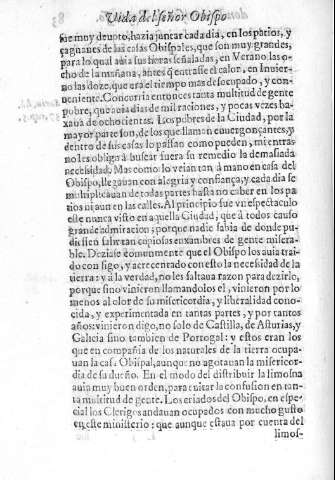 Vida del señor Obispo
fue muy deuoto, hazia juntar cada dia, en los patios, y
çaguanes de las casas Obispales, que son muy grandes,
para lo qual auia sus horas señaladas, en Verano las o-
cho de la mañana, antes q̃ entrasse el calor, en Inuier-
no las doze, que era el tiempo mas desocupado, y con-
ueniente. Concurria entonces tanta multitud de gente
pobre, que auia dias de mil raciones, y pocas vezes ba-
xaua de ochocientas. Los pobres de la Ciudad, por la
mayor parte son, de los que llaman enuergonçantes, y
dentro de sus casas lo passan como pueden, mientras
no les obliga à buscar fuera su remedio la demasiada
necessidad. Mas como lo veian tan, à mano en casa del
Obispo, llegauan con alegria y confiança, y cada dia se
multiplicauan de todas partes hasta no caber en los pa
tios ni aun en las calles. Al principio fue vn espectaculo
este nunca visto en aquella Ciudad, que à todos causo
grande admiracion; porque nadie sabia de donde pu-
diessen salir tan copiosas enxambres de gente misera-
ble. Deziase comunmente que el Obispo los auia trai
do con sigo, y acrecentado con esto la necessidad de la
tierra: y à la verdad, no les faltaua razon para dezirlo,
porque sino vinieron llamandolos el, vinieron por lo
menos al olor de su misericordia, y liberalidad cono-
cida, y experimentada en tantas partes, y por tantos
años: vinieron digo, no solo de Castilla, de Asturias, y
Galicia sino tambien de Portogal: y estos eran los
que en compañia de los naturales de la tierra ocupa-
uan la casa Obispal, aunque no agotauan la misericor-
dia de su dueño. En el modo del distribuir la limosna
auia muy buen orden, para euitar la confusion en tan-
ta multitud de gente. Los criados del Obispo, en espe-
cial los Clerigos andauan ocupados con mucho gusto
en este ministerio: que aunque estaua por cuenta del
limos-